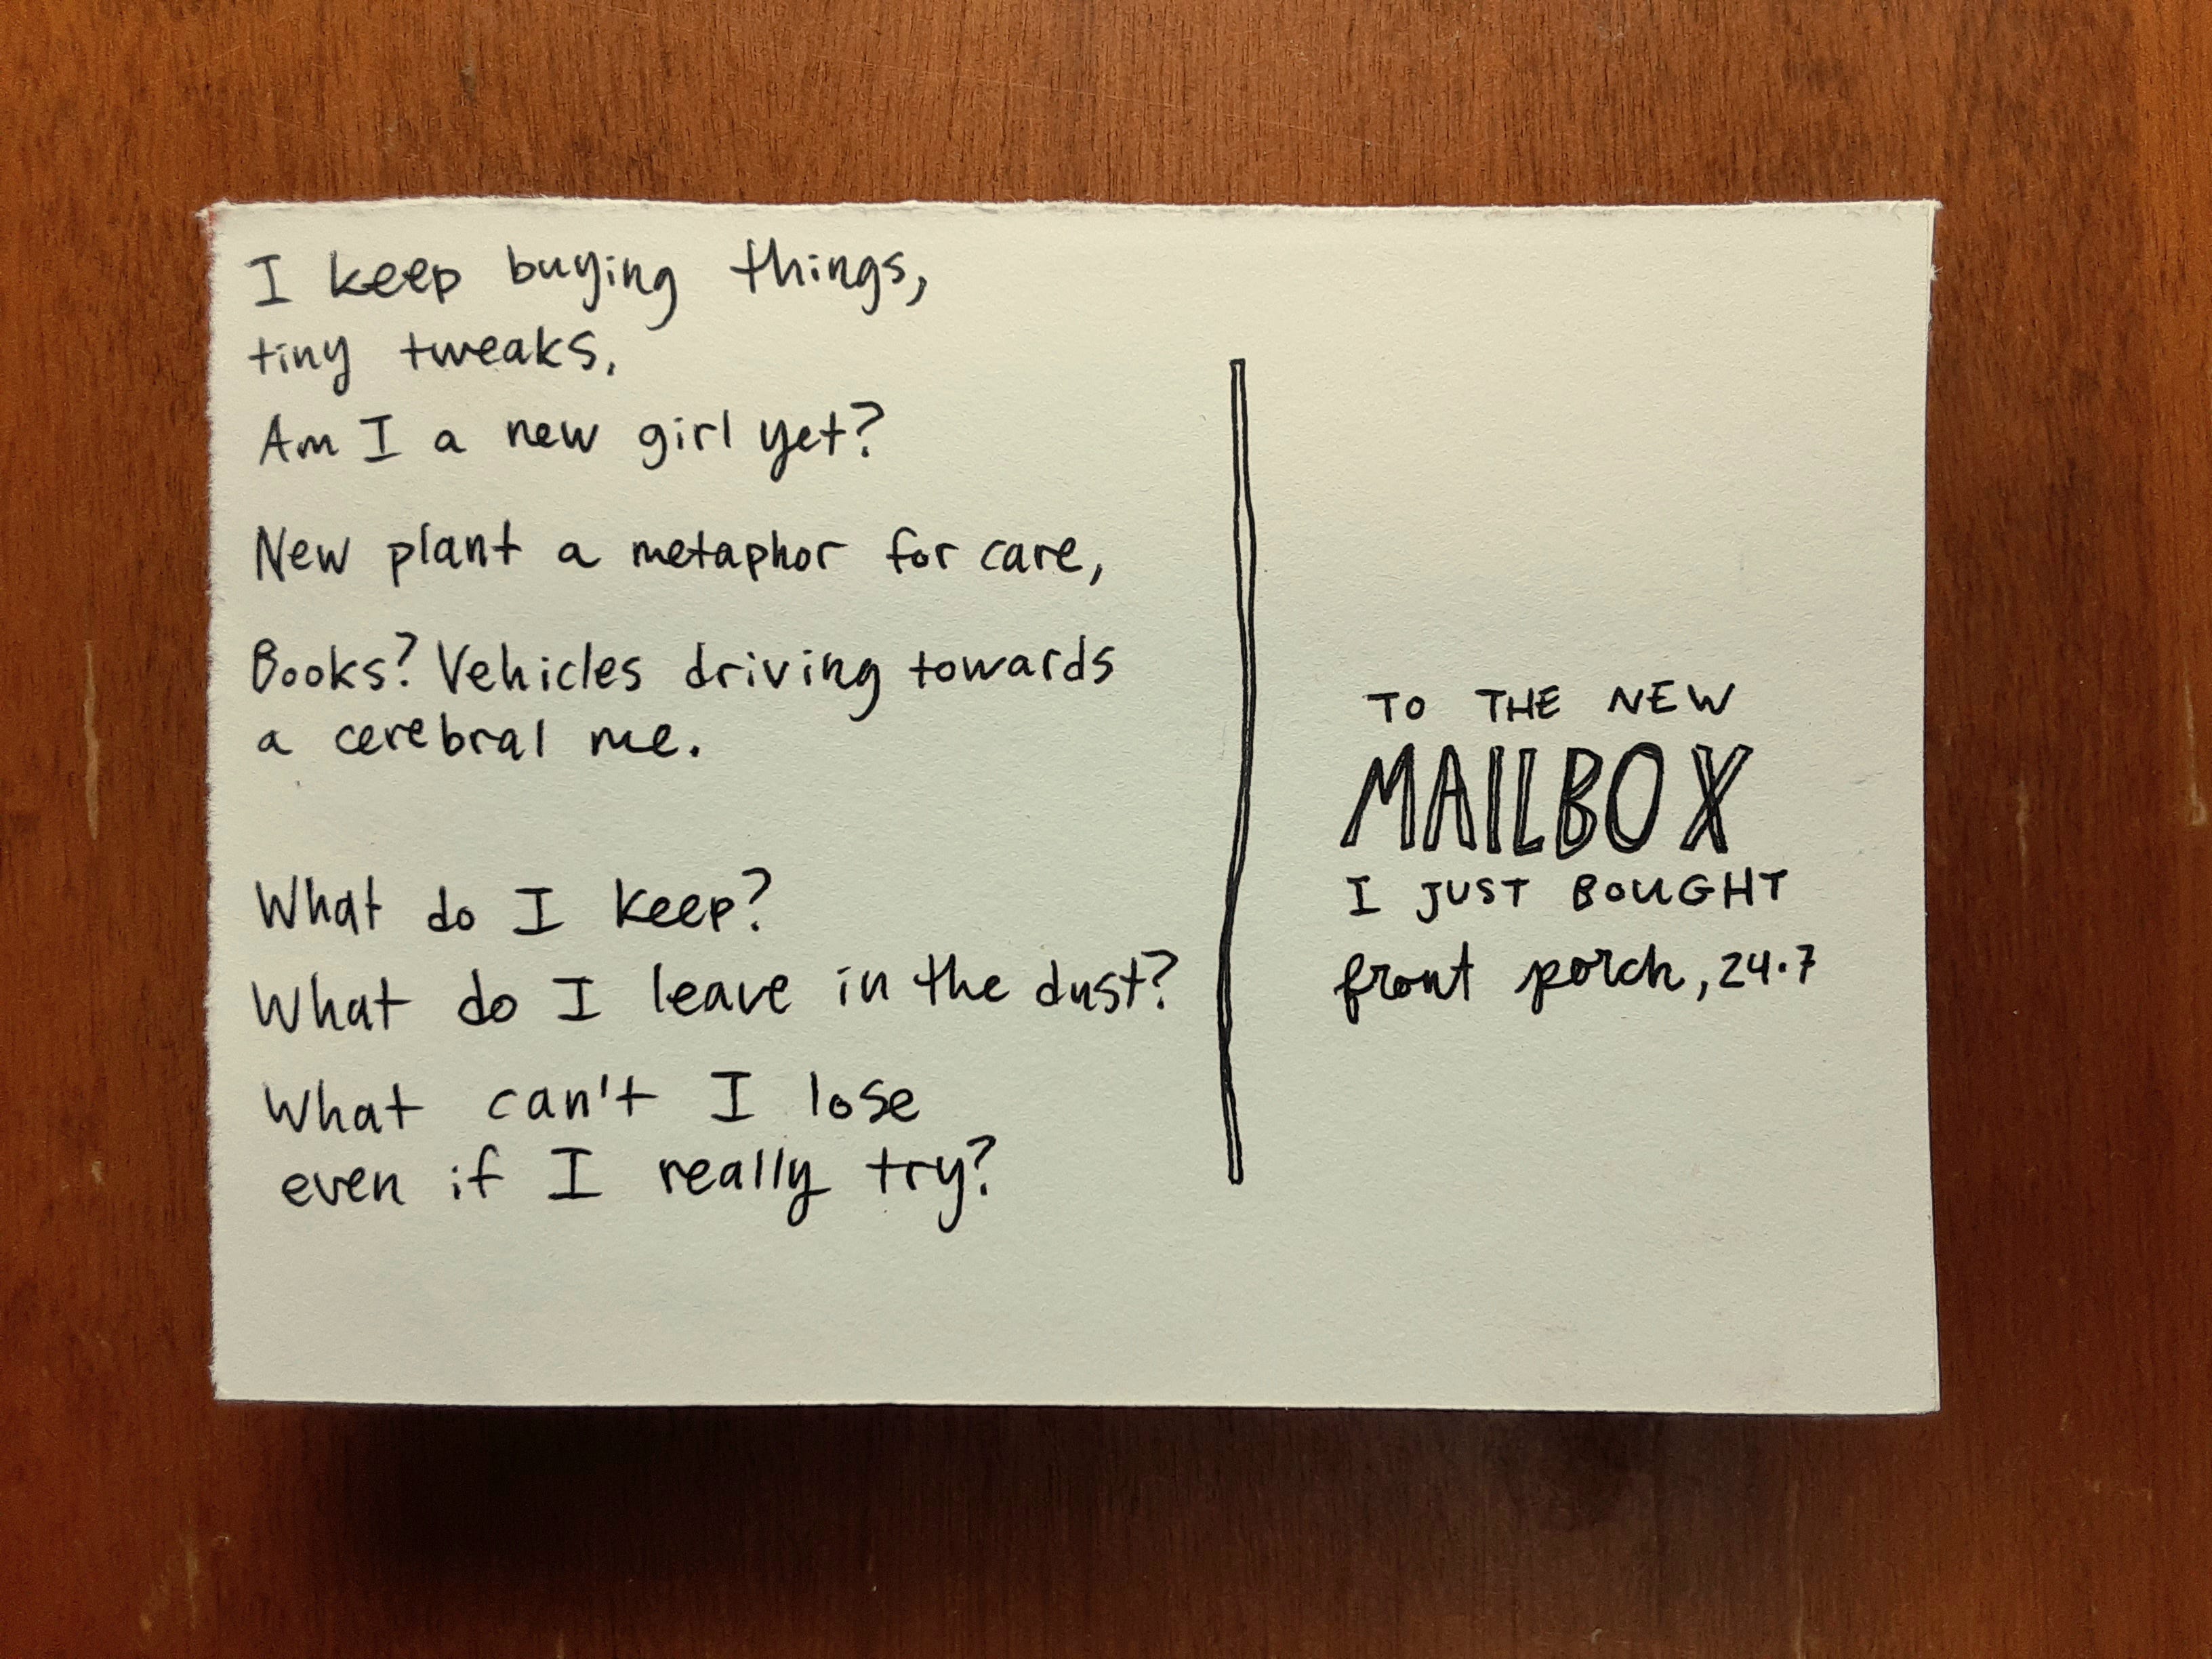 I keep buying things,
tiny tweaks.
Am I a new girl yet?
New plant a metaphor for care,
Books? Vehicles driving towards
a cerebral me.
What do I keep?
What do I leave in the dust?
What can't I lose
even if I really try?
TO THE NEW
MAILBOX
I JUST BOUGHT
front porch, 24.7